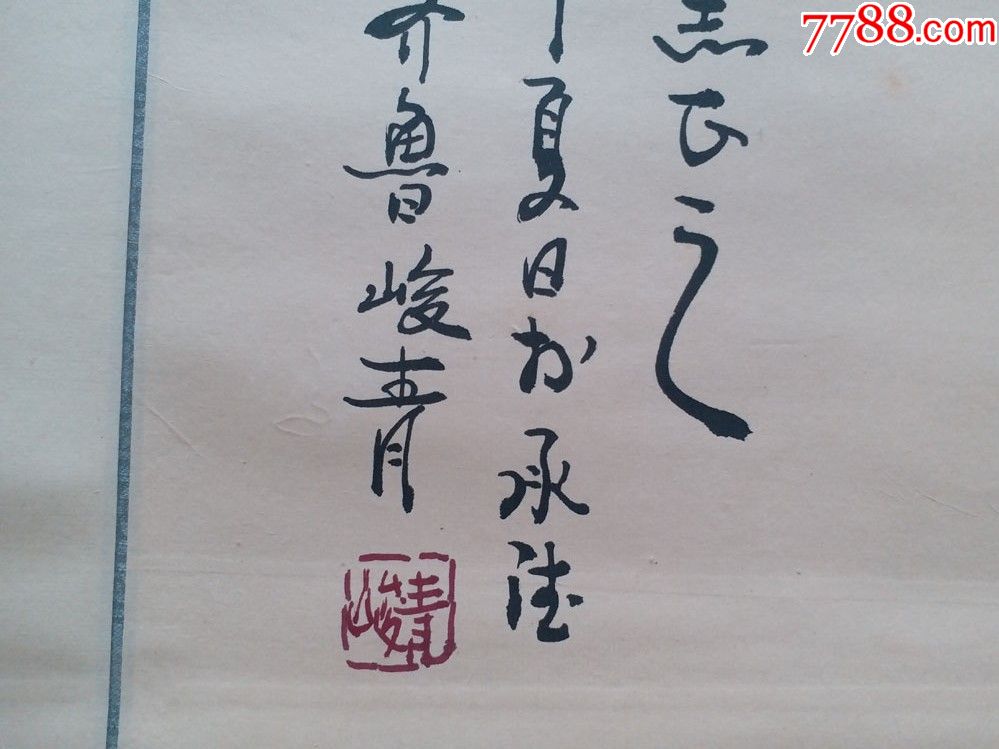 7788.com
志正之
夏日於承德
齐鲁峻青
峻青